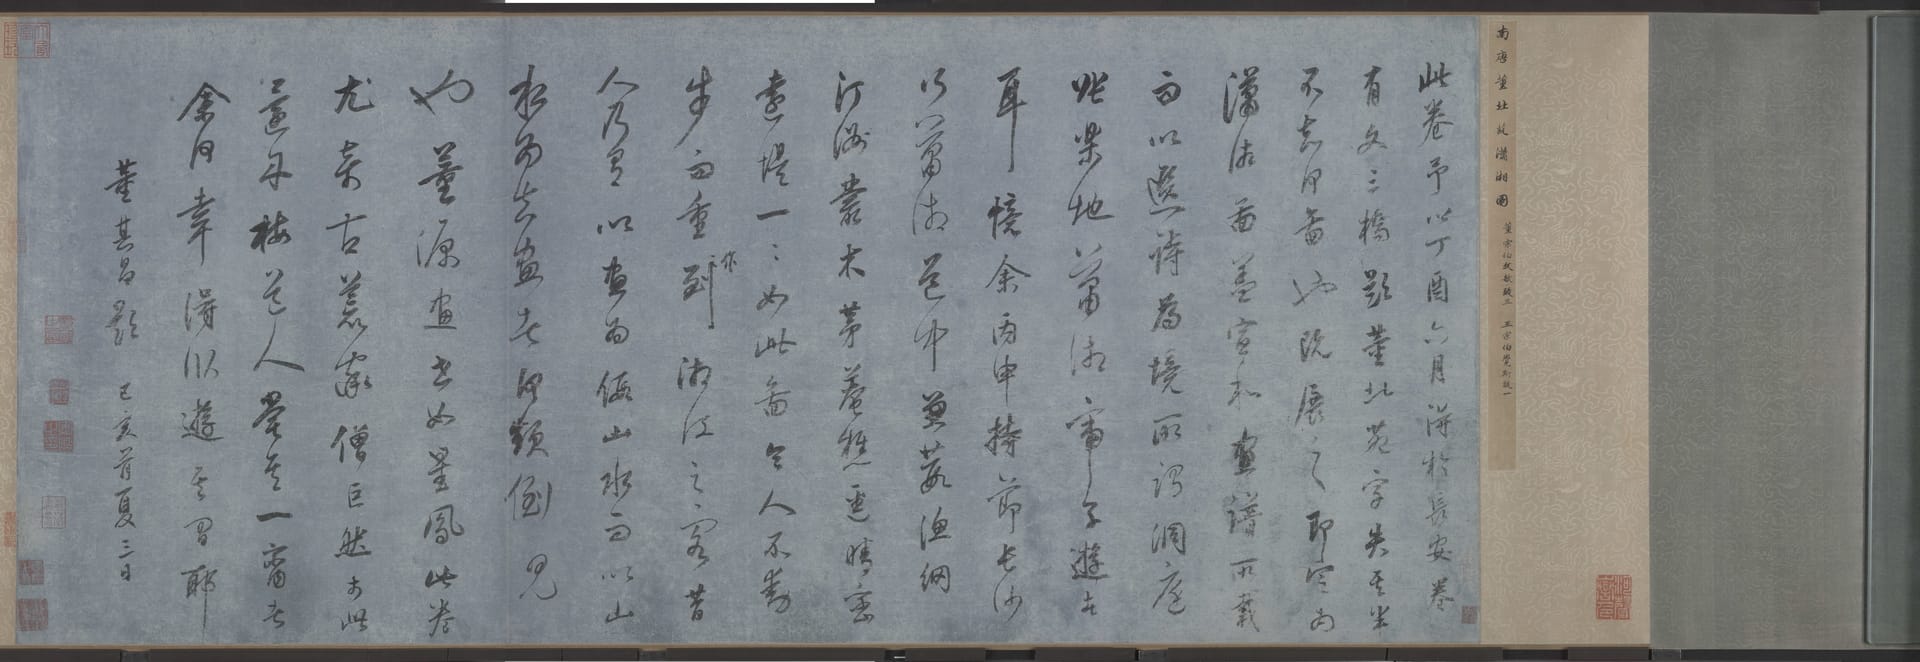 南唐董北苑瀟湘圖
董宗伯 跋三 王宗伯覺斯跋一
此卷予以丁酉六月得於長安卷
有文三橋題董北苑字失其半
不知何圖也既展之即定為
瀟湘圖蓋宣和畫譜所載
而以選詩為境所謂洞庭
張樂地瀟湘帝子遊者
耳憶余丙申持節長沙
行瀟湘道中蒹葭漁網
汀洲叢木茅菴樵徑晴巒
遠堤一一如此圖令人不動
步而重到作湘江之客昔
人乃有以畫為假山水而以山
水為真畫者何顛倒見
也董源畫世如星鳳此卷
尤奇古荒率僧巨然於此
還丹梅道人嘗其一臠者
余何幸得臥遊其間耶
董其昌題 己亥首夏三日